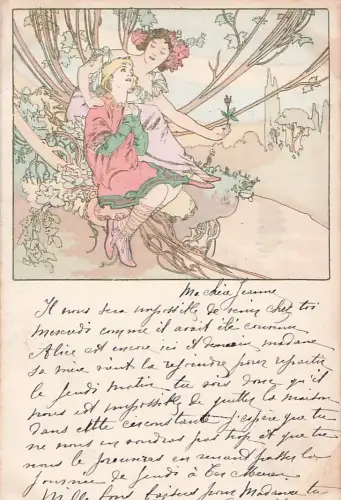 Ma chère Jeanne
Il nous sera impossible de venir chez toi
Mercredi comme il avait été convenu
Alice est encore ici et demain madame
sa mère vient la rejoindre pour repartir
le jeudi matin tu vois donc qu'il
nous est impossible de quitter la maison
dans cette circonstance j'espère que tu
ne nous en voudras pas trop et que tu
nous le prouveras en venant passer la
journée de jeudi à
Mille bons baisers pour Madame ta